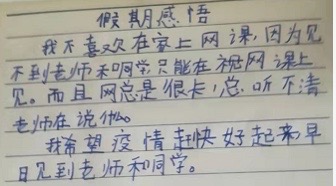 假期感悟
我不喜欢在家上网课,因为见
不到老师和同学,只能在视网课上
见。而且网总是很卡,总听不清
老师在说什么。
我希望疫情赶快好起来,早
日见到老师和同学。